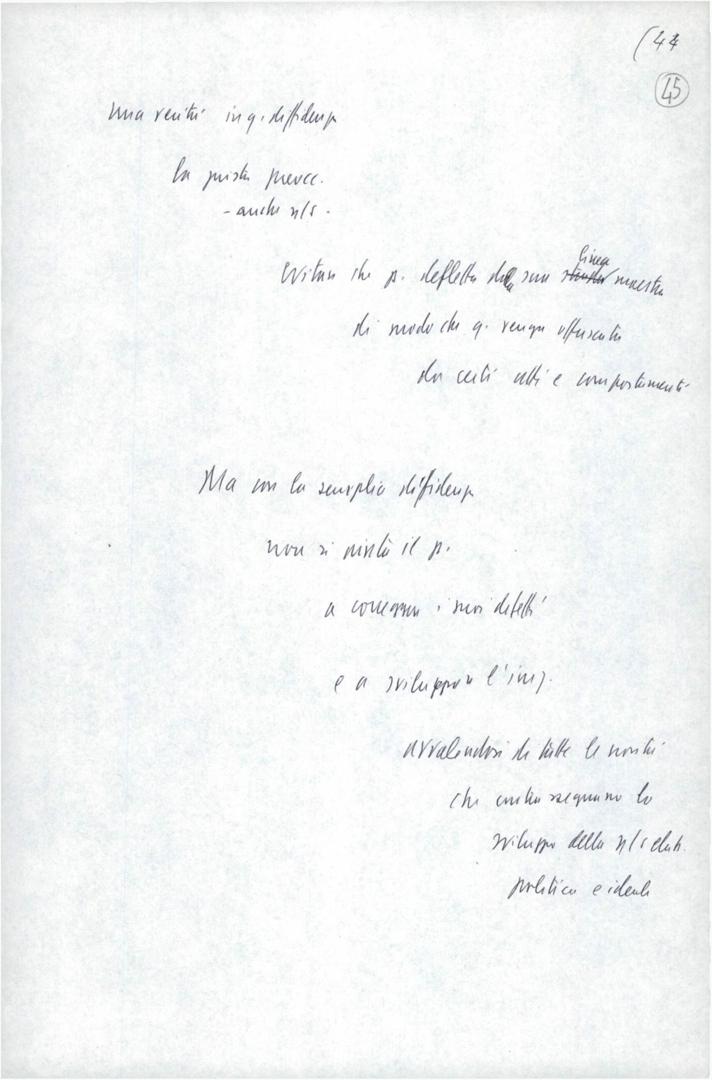 (44
45
una verità in q. diffidenza
la giusta preocc.
- anche n/s -
evitare che p. defletta dalla sua linea maestra
di modo che q. venga offuscata
da certi atti e comportamenti
Ma con la semplice diffidenza
non si aiuta il p.
a correggere i suoi difetti
e a sviluppare l'iniz.
avvalendosi di tutte le novità
che contrassegnano lo
sviluppo della n/s elab.
politica e ideale